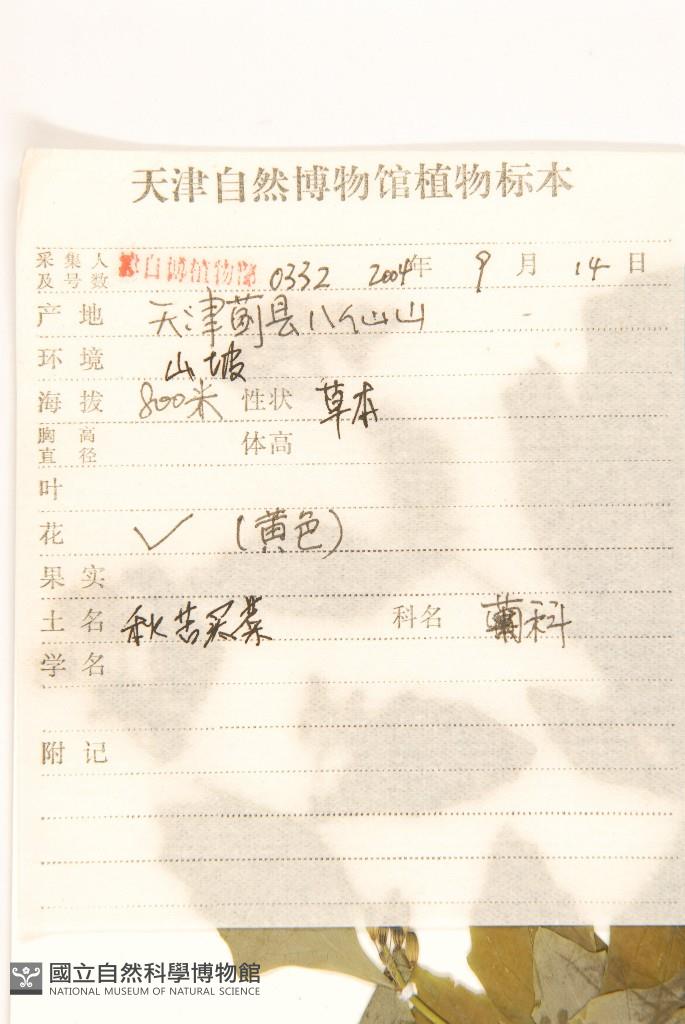 天津自然博物馆植物标本
采集人及号数 津自博植物部 0332 2004年 9月 14日
产地 天津蓟县八仙山
环境 山坡
海拔 800米 性状 草本
胸高直径 体高
叶
花 ✓ (黄色)
果实
土名 秋苦荬菜 科名 菊科
学名
附记
國立自然科學博物館
NATIONAL MUSEUM OF NATURAL SCIENCE